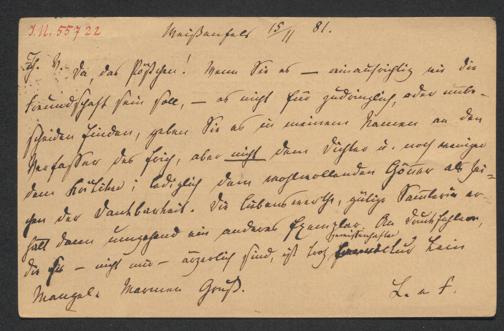 I.N. 55722
Weißenfels 15/11 81.
Da, das Röschen! Wenn Sie es — einaufsichtig wie die
Freundschaft sein soll, — es nicht für zudringlich, oder unbe-
scheiden finden, geben Sie es in meinem Namen an den
Verfasser des aber nicht dem Dichter u. noch weniger
dem Kritiker; lediglich dem wohlwollenden Gönner als Zei-
chen der Dankbarkeit. Die liebenswerthe, gütige er-
hält dann umgehend ein anderes Exemplar. An Druckfehlern,
die — nicht nur — ärgerlich sind, ist trotz kein
Mangel. Warmen Gruß.
L. a f.